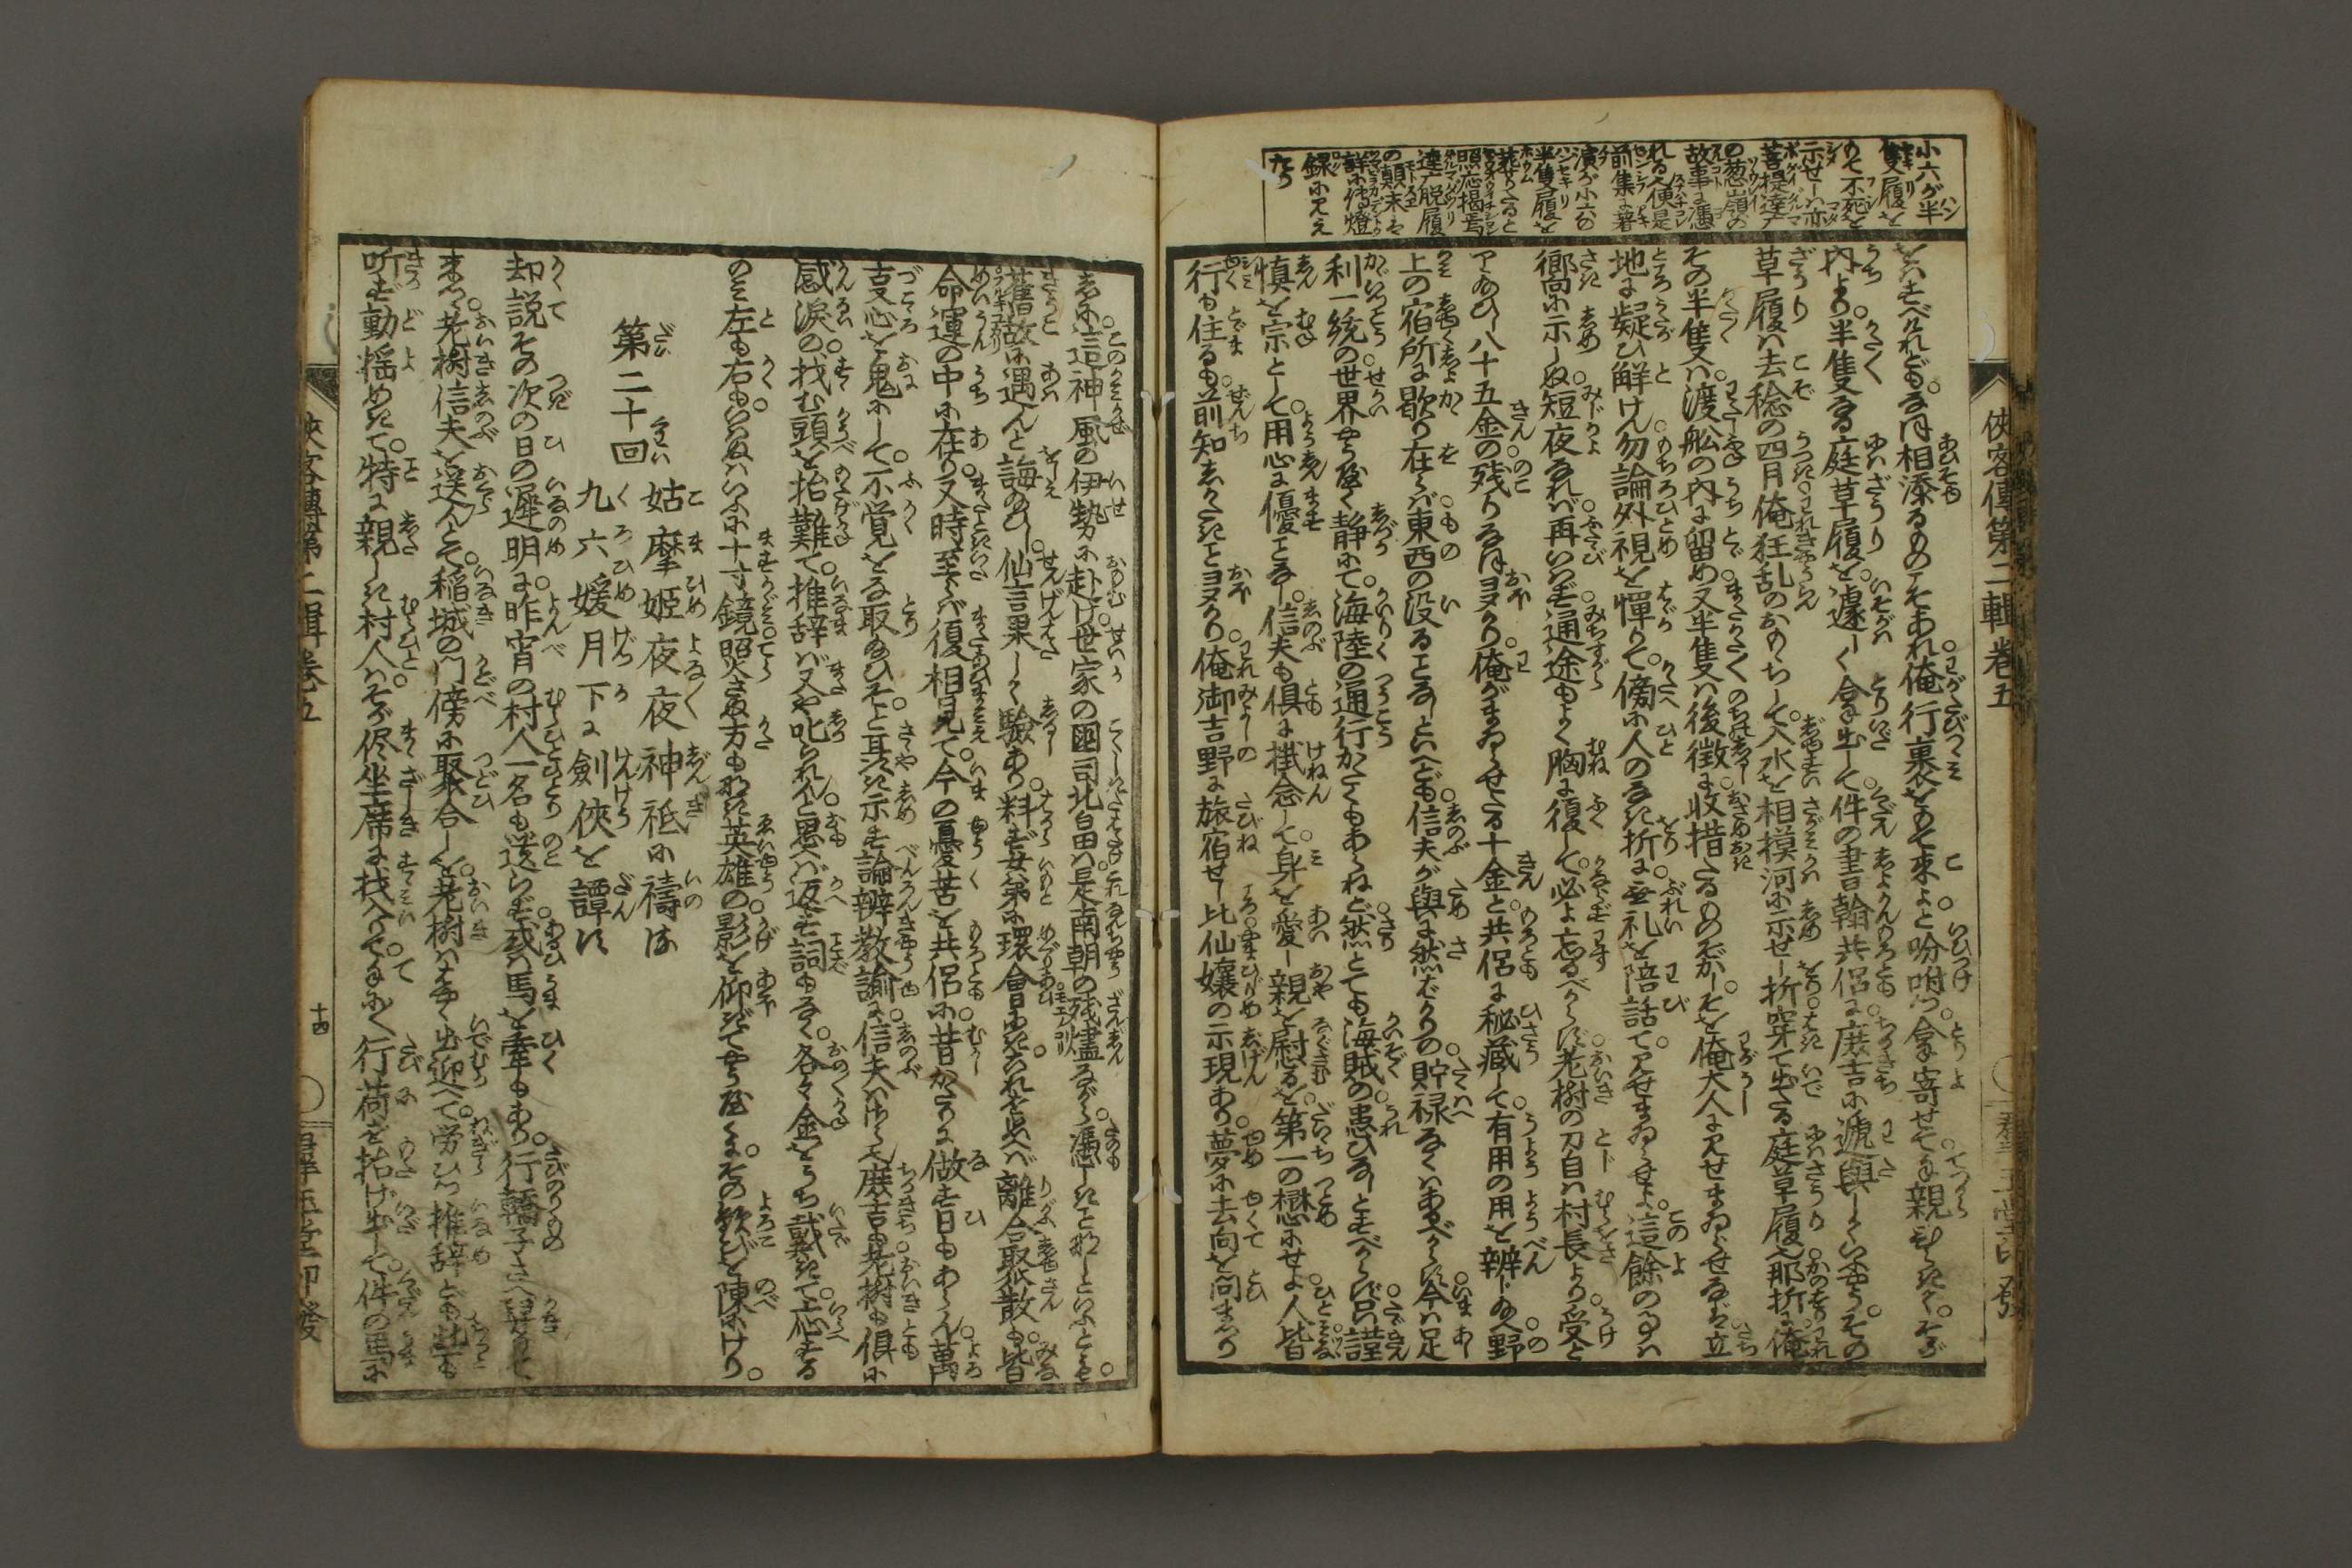 小六が半
隻履を
もて不死を
示せしは亦
菩提達广
の葱嶺の
故事に憑
れる便是
前集に著
演が小六の
半隻履を
葬せたると
照応掲焉
達广脱履
の顛末は
詳に傳燈
録に見え
たり
をはすべけれども。なほ相添るものこそあれ俺行裹をもて來よと吩咐つ。拿寄せて手親ひらきて。そが
内より。半隻なる庭草履を。遽しく拿出して件の書翰共侶に。庶吉に遞與していふやう。その
草履は去稔の四月俺狂乱のおもちして。入水を相模河に示せし折。穿て出たる庭草履。那折に俺
その半隻は。渡舩の内に留め又半隻は後徴に。收措たるものぞかし。そを俺大人に見せまゐらせなば立
地に疑ひ觧けん勿論外視を憚りて。傍に人のなき折に。無礼を陪話て。見せまゐらせよ。這餘の事は
郷向に示しぬ。短夜なれば再いはず。通途もよく胸に復して。必よ忘るべからず。老樹の刀自は村長より受と
り給ひし八十五金の残りなほヨタり。俺がまゐらせたる十金と。共侶に秘藏して。有用の用を辨じ給へ野
上の宿所に歇り在らば。東西の没ることなしといへども。信夫が與に然ばかりの。貯禄なくはあるべからず。今は足
利一統の世界やうやく静にて。海陸の通行かたくもあらねど。然とても海賊の患ひなしとすべからず。只謹
慎を宗として。用心に優ことなし。信夫も倶に掛念して。身を愛し親を慰るを。第一の懋にせよ。人皆
行も住るも。前知しがたきことヨタり。俺御吉野に旅宿せし比仙孃の示現あり。夢に去向を問まつり
俠客傳第二輯卷五
しに。這神風の伊勢に赴け。世家の國司北畠は。是南朝の残燼ながら。憑しきこと那しといふとも。
舊故に遇んと誨給ひし。仙言果して驗あり。料ず女弟に環會にき。これを思へば離合聚散も。皆
命運の中に在り。又時至らば復相見て。今の憂苦を共侶に。昔がたりに做す日もあらん。萬
事心を鬼にして。不覚をな取給ひそ。と耳ぢかく示す論辨教諭に。信夫はさら也庶吉も。老樹も倶に
感涙の。找む頭を抬難て。推辞ば又や叱られんと思へば返す詞もなく。各々金をうち戴きて。応する
のみ左も右も。いはぬはいふに十寸鏡照さぬ方も那き英雄の影を仰ぎてやうやくに。その歓びを陳にけり。
第二十回
姑摩姫夜夜神祇に禱る
九六媛月下に劍俠を譚ず
却説その次の日の遲明に。昨宵の村人一名も遺らず。或は馬を牽もあり。行轎子さへ舁もて
來つ。老樹信夫を送らんとて。稲城の門傍に聚合しを。老樹は先出迎へて。労ひつ推辞ども些も
听ず動揺めきて。特に親しき村人は。そが侭坐席に找入て。手に〳〵行荷を抬け出して。件の馬に
俠客傳第二輯卷五
十四